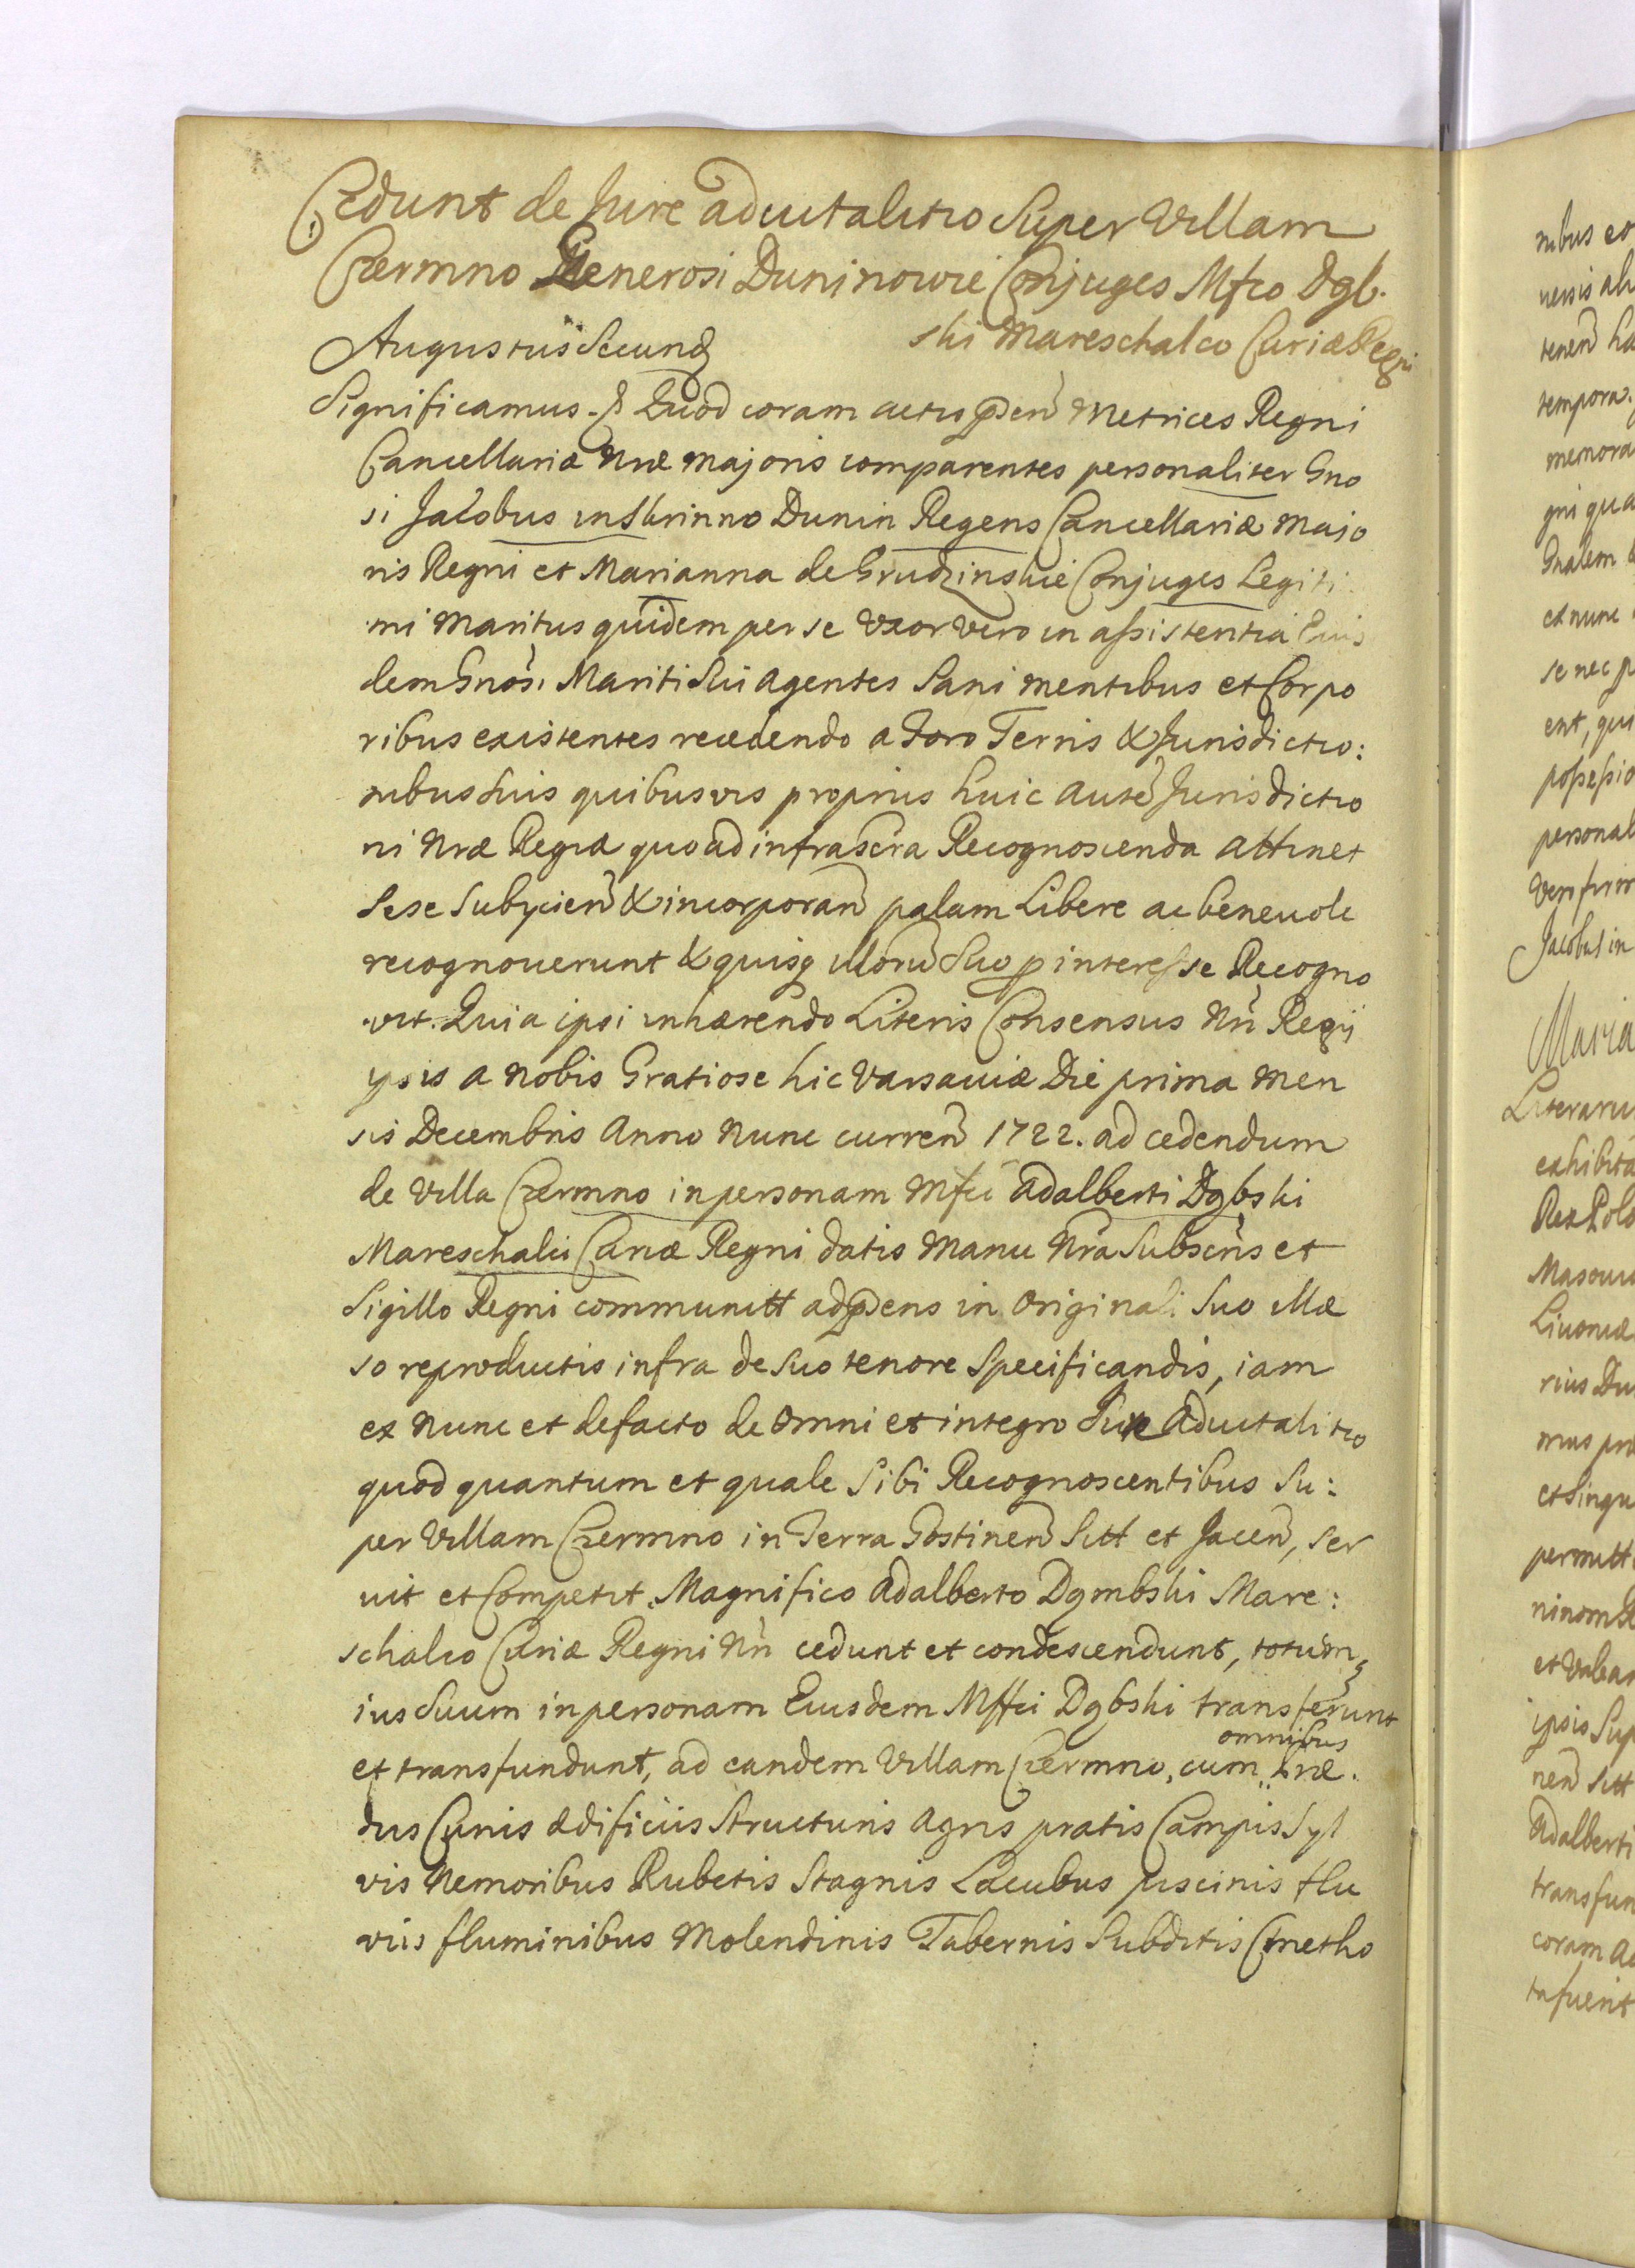 Cedunt de Jure aduitalitio Super Villam
Czermno Generosi Duninowie Conjuges Mfco Dąb.
ski Mareschalco Curiæ Regni
Augustus Secundus
Significamus. Quod coram actis pñen Metrices Regni
Cancellariæ Nræ Majoris comparentes personaliter Gno
si Jacobus in Skrinno Dunin Regens Cancellariæ Majo
ris Regni et Marianna de Grudzinskie Conjuges Legiti
mi Maritus quidem per se Uxor Vero in assistentia Eius
dem Gnosi Mariti Sui agentes Sani mentibus et Corpo
ribus existentes recedendo a Foro Terris & Jurisdictio:
nibus Suis quibusvis proprijs huic autẽ Jurisdictio
ni Nræ Regiæ quo ad infrascra Recognoscenda attinet
Sese Subijcien & incorporan palam Libere ac beneuole
recognouerunt & quisq illorũ Suo p interesse Recogno
vit. Quia ipsi inhærendo Literis Consensus Nri Regij
ipsis a Nobis Gratiose hic Varsauiæ Die prima Men
sis Decembris Anno Nunc curren 1722. ad cedendum
de Villa Czermno in personam Mfci Adalberti Dąbski
Mareschalci Curiæ Regni datis Manu Nra Subscris et
Sigillo Regni communitt ad pñens in Originali Suo illæ
so reproductis infra de Suo tenore Specificandis, iam
ex Nunc et de facto de Omni et integro Jure Aduitalitio
quod quantum et quale Sibi Recognoscentibus Su:
per Villam Czermno in Terra Gostinen Sitt et Jacen, Ser
uit et Competit. Magnifico Adalberto Dąmbski Mare:
schalco Curiæ Regni Nri cedunt et condescendunt, totumq
ius Suum in personam Eiusdem Mffci Dąbski transferunt
et transfundunt, ad eandem Villam Czermno, cum omnibus Præ.
dijs Curiis Ædificiis Structuris Agris pratis Campis Syl
vis Nemoribus Rubetis Stagnis Lacubus piscinis flu
viis fluminibus Molendinis Tabernis Subditis Cmetho